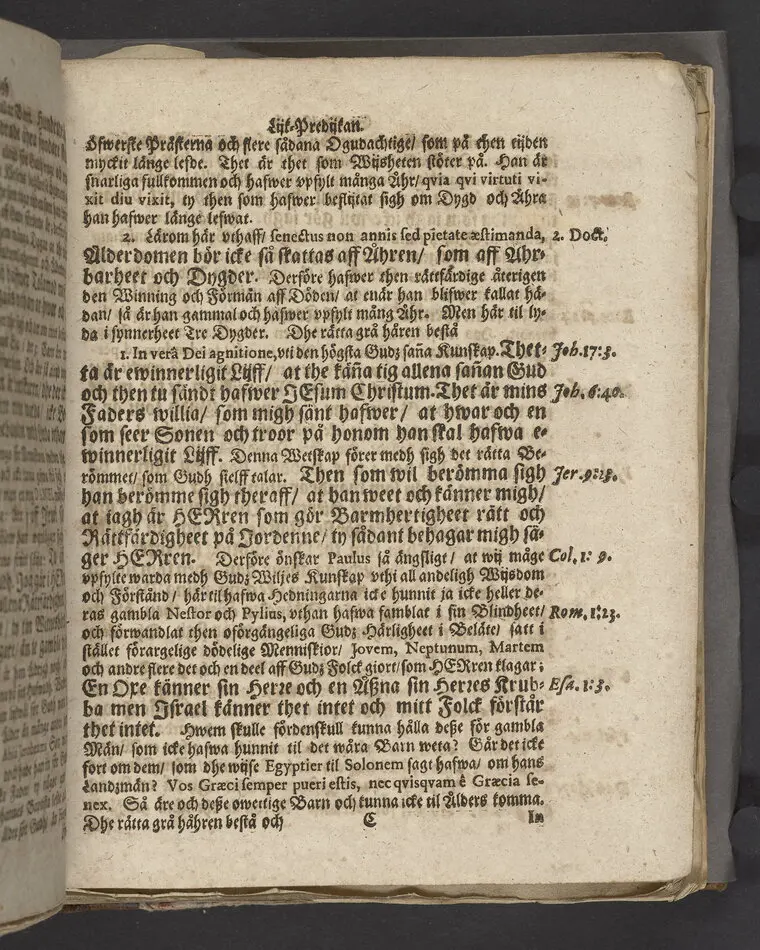 Lijk-Predijkan.
öfwerste Prästerna och flere sådana Ogudachtige/ som på then tijden
myckit länge lefde. Thet är thet som Wijsheten stöter på. Han är
snarliga fullkommen och hafwer vpfylt många Åhr/ qvia qvi virtuti vi-
xit diu vixit, ty then som hafwer beflijtat sigh om Dygd och Ähra
han hafwer länge lefwat.
2. Lärom här vthaff/ senectus non annis sed pietate æstimanda, 2. Doct.
Ålderdomen bör icke så skattas aff Åhren/ som aff Ahr-
barheet och Dygder. Derföre hafwer then rättfärdige återigen
den Winning och Förmån aff Döden/ at enär han blifwer kallat hä-
dan/ så är han gammal och hafwer vpfylt mång Åhr. Men här til ly-
da i synnerheet Tre Dygder. Dhe rätta grå håren bestå
1. In verâ Dei agnitione, vti den högsta Gudz saña Kunskap. Thet- Joh. 17:3.
ta är ewinnerligit Lijff/ at the käña tig allena sañan Gud
och then tu sändt hafwer JEsum Christum. Thet är mins Joh. 6:40.
Faders willia/ som migh sänt hafwer/ at hwar och en
som seer Sonen och troor på honom han skal hafwa e-
winnerligit Lijff. Denna Wetskap förer medh sigh det rätta Be-
römmet/ som Gudh sielff talar. Then som wil berömma sigh Jer. 9:23.
han berömme sigh theraff/ at han weet och känner migh/
at iagh är HERren som gör Barmhertigheet rätt och
Rättfärdigheet på Jordenne/ ty sådant behagar migh sä-
ger HERren. Derföre önskar Paulus så ängsligt/ at wij måge Col. 1: 9.
vpfylte warda medh Gudz Wiljes Kunskap vthi all andeligh Wijsdom
och Förstånd/ här til hafwa Hedningarna icke hunnit ja icke heller de-
ras gambla Nestor och Pylius, vthan hafwa famblat i sin Blindheet/ Rom. 1:23.
och förwandlat then oförgängeliga Gudz Härligheet i Beläte/ satt i
stället förargelige dödelige Menniskior/ Jovem, Neptunum, Martem
och andre flere det och en deel aff Gudz Folck giort/ som HERren klagar:
En Oxe känner sin Herre och en Åßna sin Herres Krub- Esa. 1:3.
ba men Israel känner thet intet och mitt Folck förstår
thet intet. Hwem skulle fördenskull kunna hålla deße för gambla
Män/ som icke hafwa hunnit til det wåra Barn weta? Går det icke
fort om dem/ som dhe wijse Egyptier til Solonem sagt hafwa/ om hans
Landzmän? Vos Græci semper pueri estis, nec qvisqvam ê Græcia se-
nex. Så äre och deße owettige Barn och kunna icke til Ålders komma.
Dhe rätta grå håhren bestå och C In